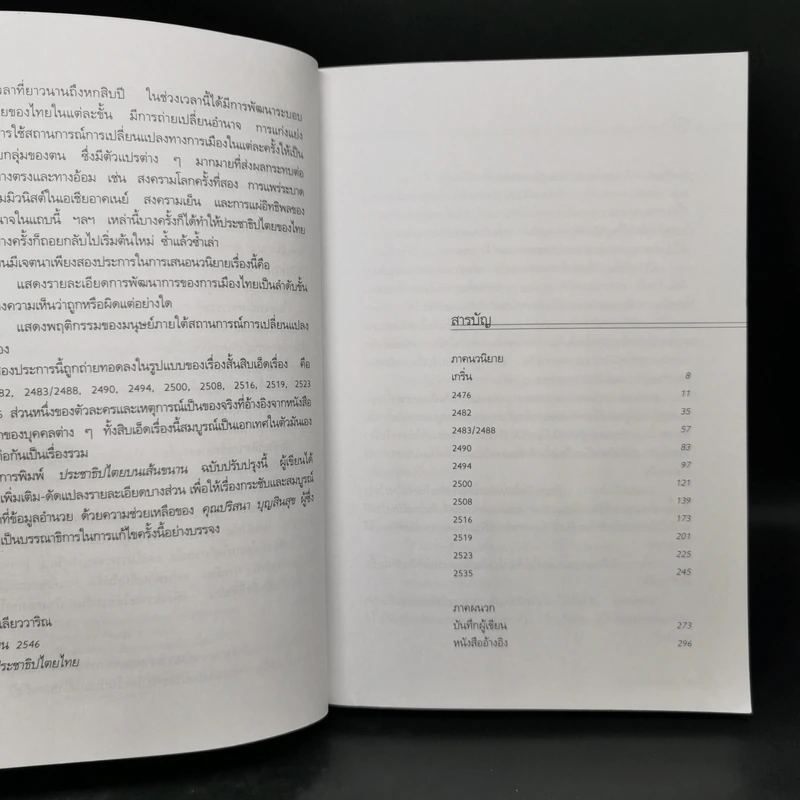 วลาที่ยาวนานถึงหกสิบปี ในช่วงเวลานี้ได้มีการพัฒนาระบอบ
ยของไทยในแต่ละขั้น มีการถ่ายเปลี่ยนอำนาจ การแก่งแย่ง
ารใช้สถานการณ์การเปลี่ยนแปลงทางการเมืองในแต่ละครั้งให้เป็น
บกลุ่มของตน ซึ่งมีตัวแปรต่าง ๆ มากมายที่ส่งผลกระทบต่อ
างตรงและทางอ้อม เช่น สงครามโลกครั้งที่สอง การแพร่ระบาด
มมิวนิสต์ในเอเชียอาคเนย์ สงครามเย็น และการแผ่อิทธิพลของ
นาจในแถบนี้ ฯลฯ เหล่านี้บางครั้งก็ได้ทำให้ประชาธิปไตยของไทย
างครั้งก็ถอยกลับไปเริ่มต้นใหม่ ซ้ำแล้วซ้ำเล่า
นมีเจตนาเพียงสองประการในการเสนอนวนิยายเรื่องนี้คือ
แสดงรายละเอียดการพัฒนาการของการเมืองไทยเป็นลำดับขั้น
งความเห็นว่าถูกหรือผิดแต่อย่างใด
แสดงพฤติกรรมของมนุษย์ภายใต้สถานการณ์การเปลี่ยนแปลง
อง
องประการนี้ถูกถ่ายทอดลงในรูปแบบของเรื่องสั้นสิบเอ็ดเรื่อง คือ
82, 2483/2488, 2490, 2494, 2500, 2508, 2516, 2519, 2523
5 ส่วนหนึ่งของตัวละครและเหตุการณ์เป็นของจริงที่อ้างอิงจากหนังสือ
กของบุคคลต่าง ๆ ทั้งสิบเอ็ดเรื่องนี้สมบูรณ์เป็นเอกเทศในตัวมันเอง
ต่อกันเป็นเรื่องรวม
การพิมพ์ ประชาธิปไตยบนเส้นขนาน ฉบับปรับปรุงนี้ ผู้เขียนได้
เพิ่มเติม-ดัดแปลงรายละเอียดบางส่วน เพื่อให้เรื่องกระชับและสมบูรณ์
าที่ข้อมูลอำนวย ด้วยความช่วยเหลือของ คุณปริสนา บุญสินสุข ผู้ซึ่ง
เป็นบรรณาธิการในการแก้ไขครั้งนี้อย่างบรรจง
เลียววาริณ
ยน 2546
ประชาธิปไตยไทย
สารบัญ
ภาคนวนิยาย
เกริ่น 8
2476 11
2482 35
2483/2488 57
2490 83
2494 97
2500 121
2508 139
2516 173
2519 201
2523 225
2535 245
ภาคผนวก
บันทึกผู้เขียน 273
หนังสืออ้างอิง 296